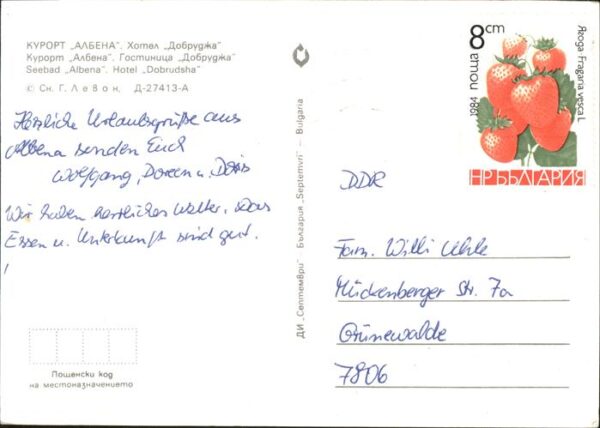 КУРОРТ „АЛБЕНА". Хотел „Добруджа"
Курорт „Албена". Гостиница „Добруджа"
Seebad „Albena". Hotel „Dobrudsha"
© Сн. Г. Левон, Д-27413-А
Herzliche Urlaubsgrüße aus
Albena senden Euch
Wolfgang, Doreen u. Doris
Wir haben herrliches Wetter, das
Essen u. Unterkunft sind gut.
!
Пощенски код
на местоназначението
ДИ „Септември" - България „Septemvri" - Bulgaria
8 cm
1984 поща
Ягода-Fragaria vesca L.
НР БЪЛГАРИЯ
DDR
Fam. Willi Uhle
Mückenberger Str. 7a
Grünewalde
7806